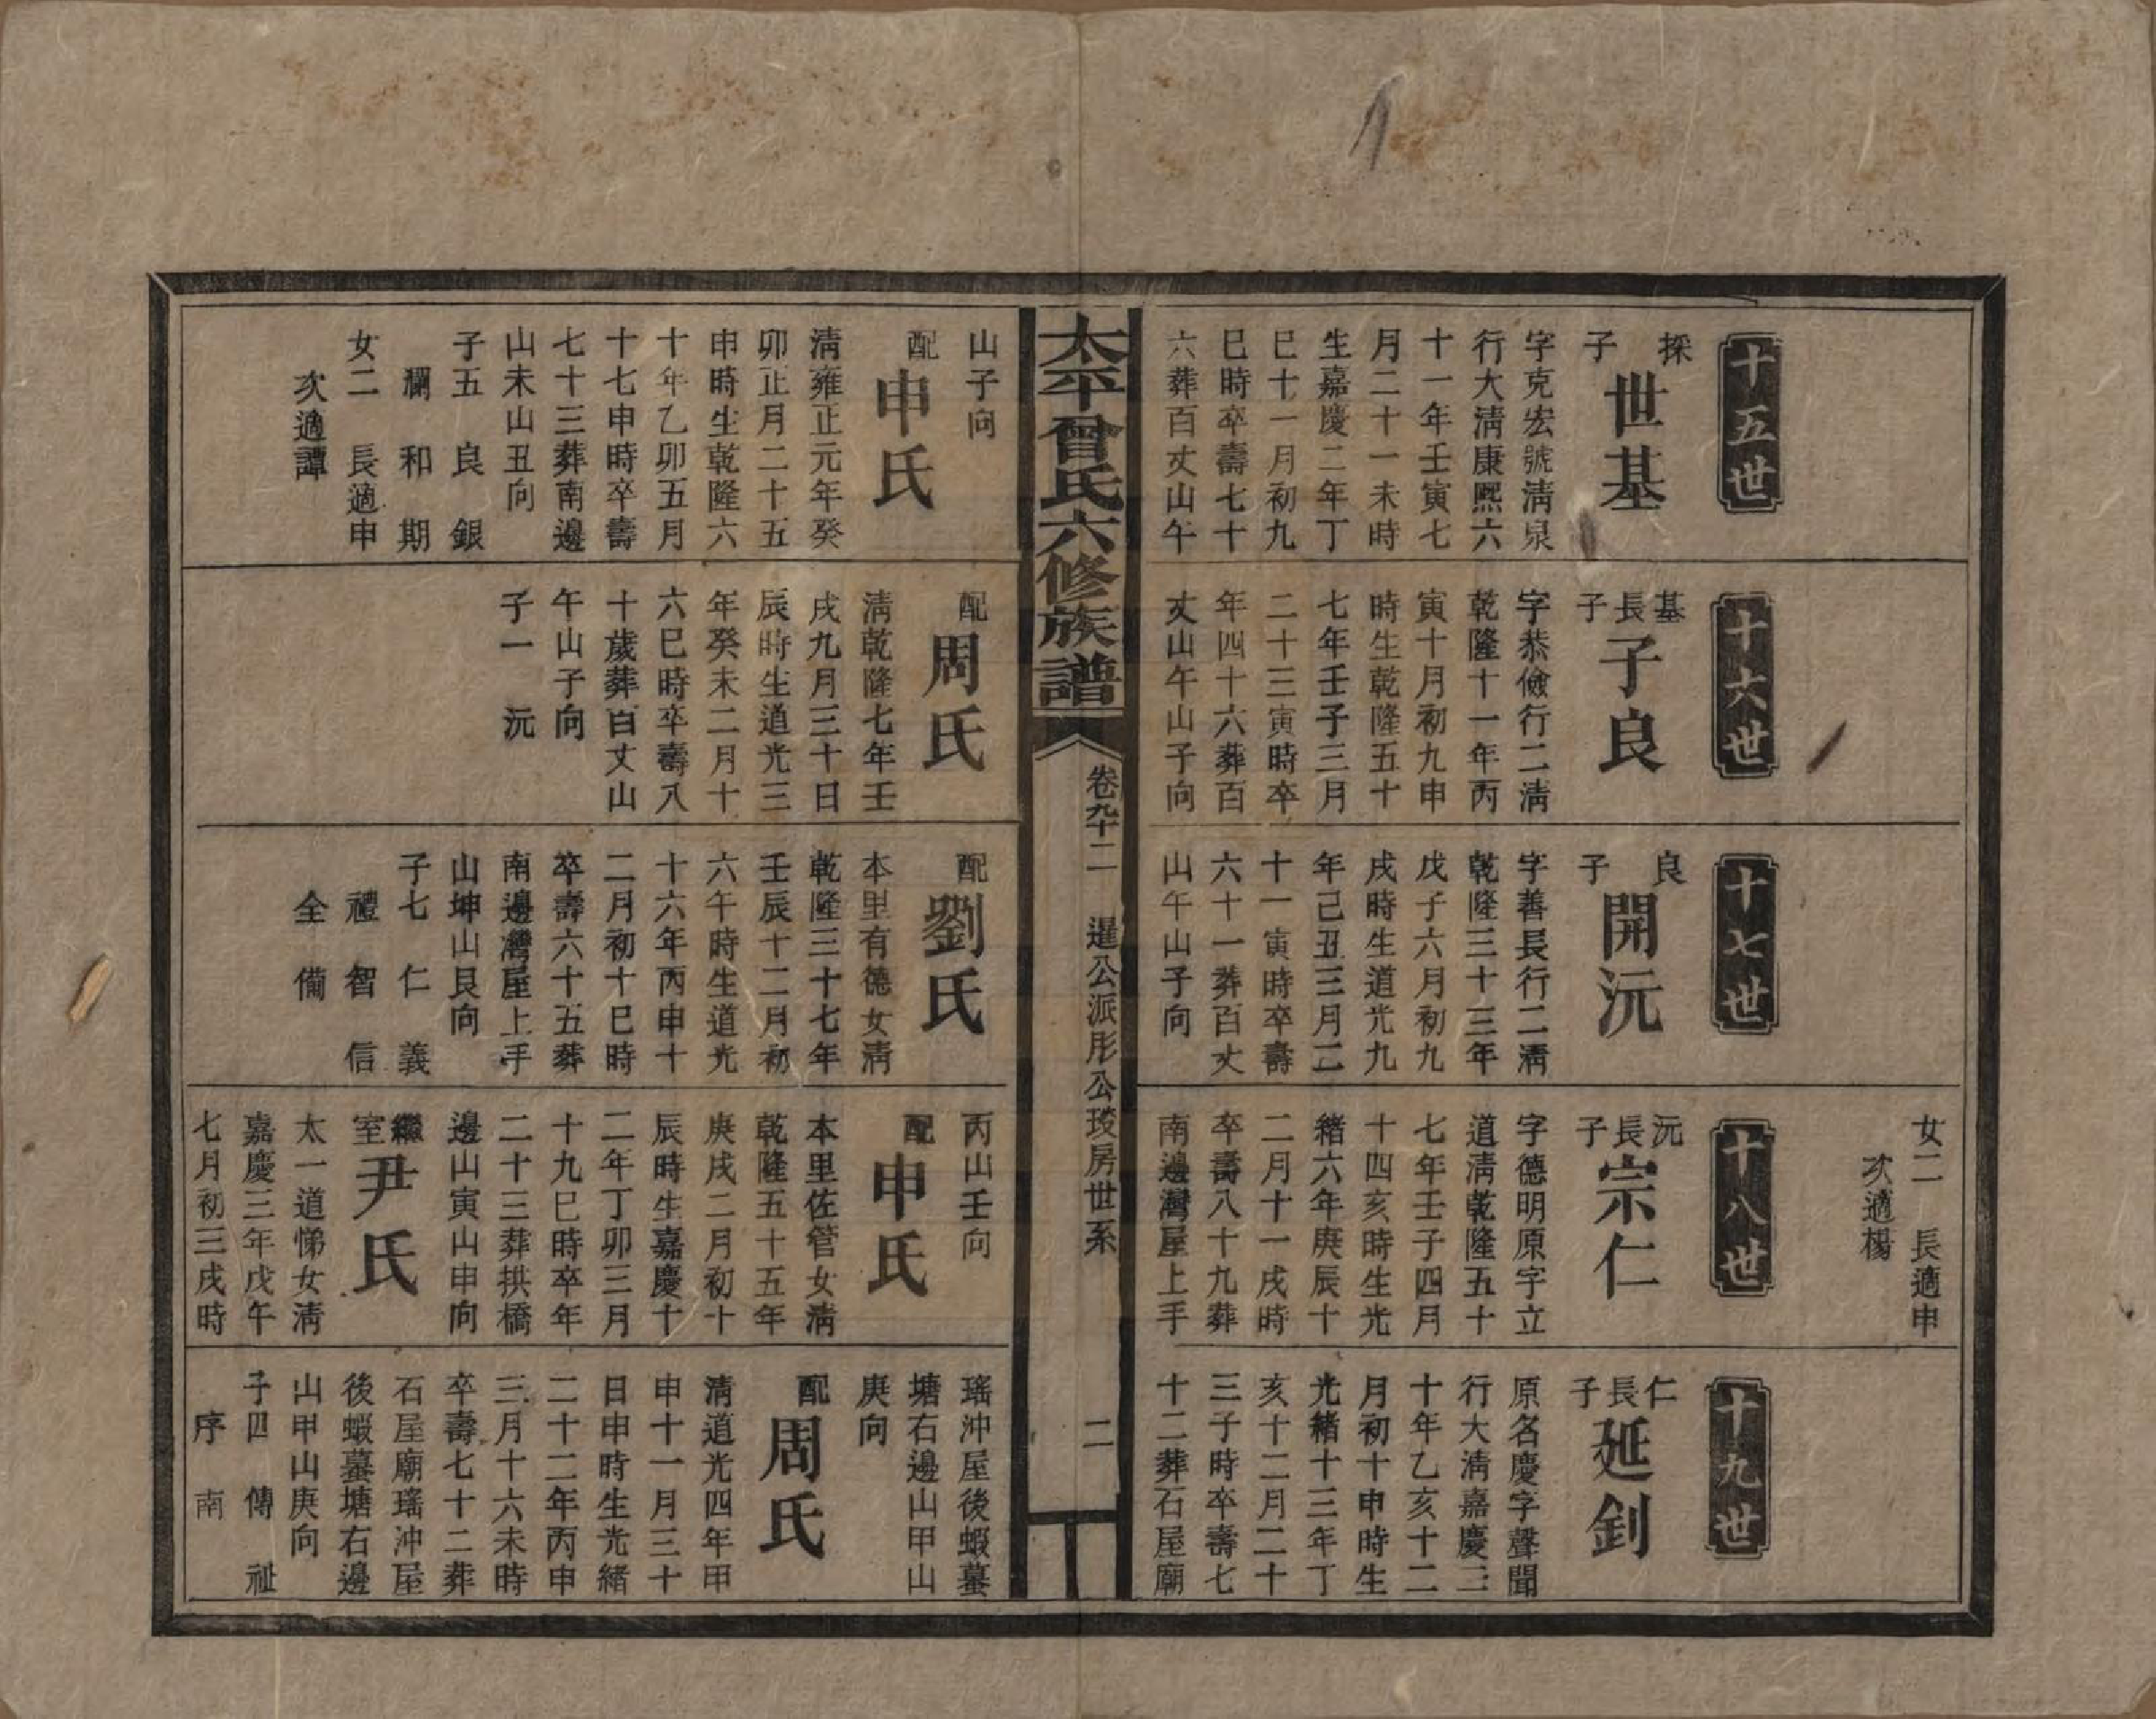 十五世
探子
世基
字克宏號淸泉
行大淸康熙六
十一年壬寅七
月二十一未時
生嘉慶二年丁
巳十一月初九
巳時卒壽七十
六葬百丈山午
山子向
配
申氏
淸雍正元年癸
卯正月二十五
申時生乾隆六
十年乙卯五月
十七申時卒壽
七十三葬南邊
山未山丑向
子五 良 銀
瀾 和 期
女二 長適申
次適譚
十六世
基長子
子良
字恭儉行二淸
乾隆十一年丙
寅十月初九申
時生乾隆五十
七年壬子三月
二十三寅時卒
年四十六葬百
丈山午山子向
配
周氏
淸乾隆七年壬
戌九月三十日
辰時生道光三
年癸未二月十
六巳時卒壽八
十歲葬百丈山
午山子向
子一 沅
十七世
良子
開沅
字善長行二淸
乾隆三十三年
戊子六月初九
戌時生道光九
年己丑三月二
十一寅時卒壽
六十一葬百丈
山午山子向
配
劉氏
本里有德女淸
乾隆三十七年
壬辰十二月初
六午時生道光
十六年丙申十
二月初十巳時
卒壽六十五葬
南邊灣屋上手
山坤山艮向
子七 仁 義
禮 智 信
全 備
女二 長適申
次適楊
十八世
沅長子
宗仁
字德明原字立
道淸乾隆五十
七年壬子四月
十四亥時生光
緒六年庚辰十
二月十一戌時
卒壽八十九葬
南邊灣屋上手
丙山壬向
配
申氏
本里佐管女淸
乾隆五十五年
庚戌二月初十
辰時生嘉慶十
二年丁卯三月
十九巳時卒年
二十三葬拱橋
邊山寅山申向
繼室
尹氏
太一道悌女淸
嘉慶三年戊午
七月初三戌時
十九世
仁長子
延釗
原名慶字聲聞
行大淸嘉慶二
十年乙亥十二
月初十申時生
光緒十三年丁
亥十二月二十
三子時卒壽七
十二葬石屋廟
瑤沖屋後蝦蟇
塘右邊山甲山
庚向
配
周氏
淸道光四年甲
申十一月三十
日申時生光緒
二十二年丙申
三月十六未時
卒壽七十二葬
石屋廟瑤沖屋
後蝦蟇塘右邊
山甲山庚向
子四 傳 祉
序 南
太平曾氏六修族譜
卷九十二
暹公派彤公琰房世系
二